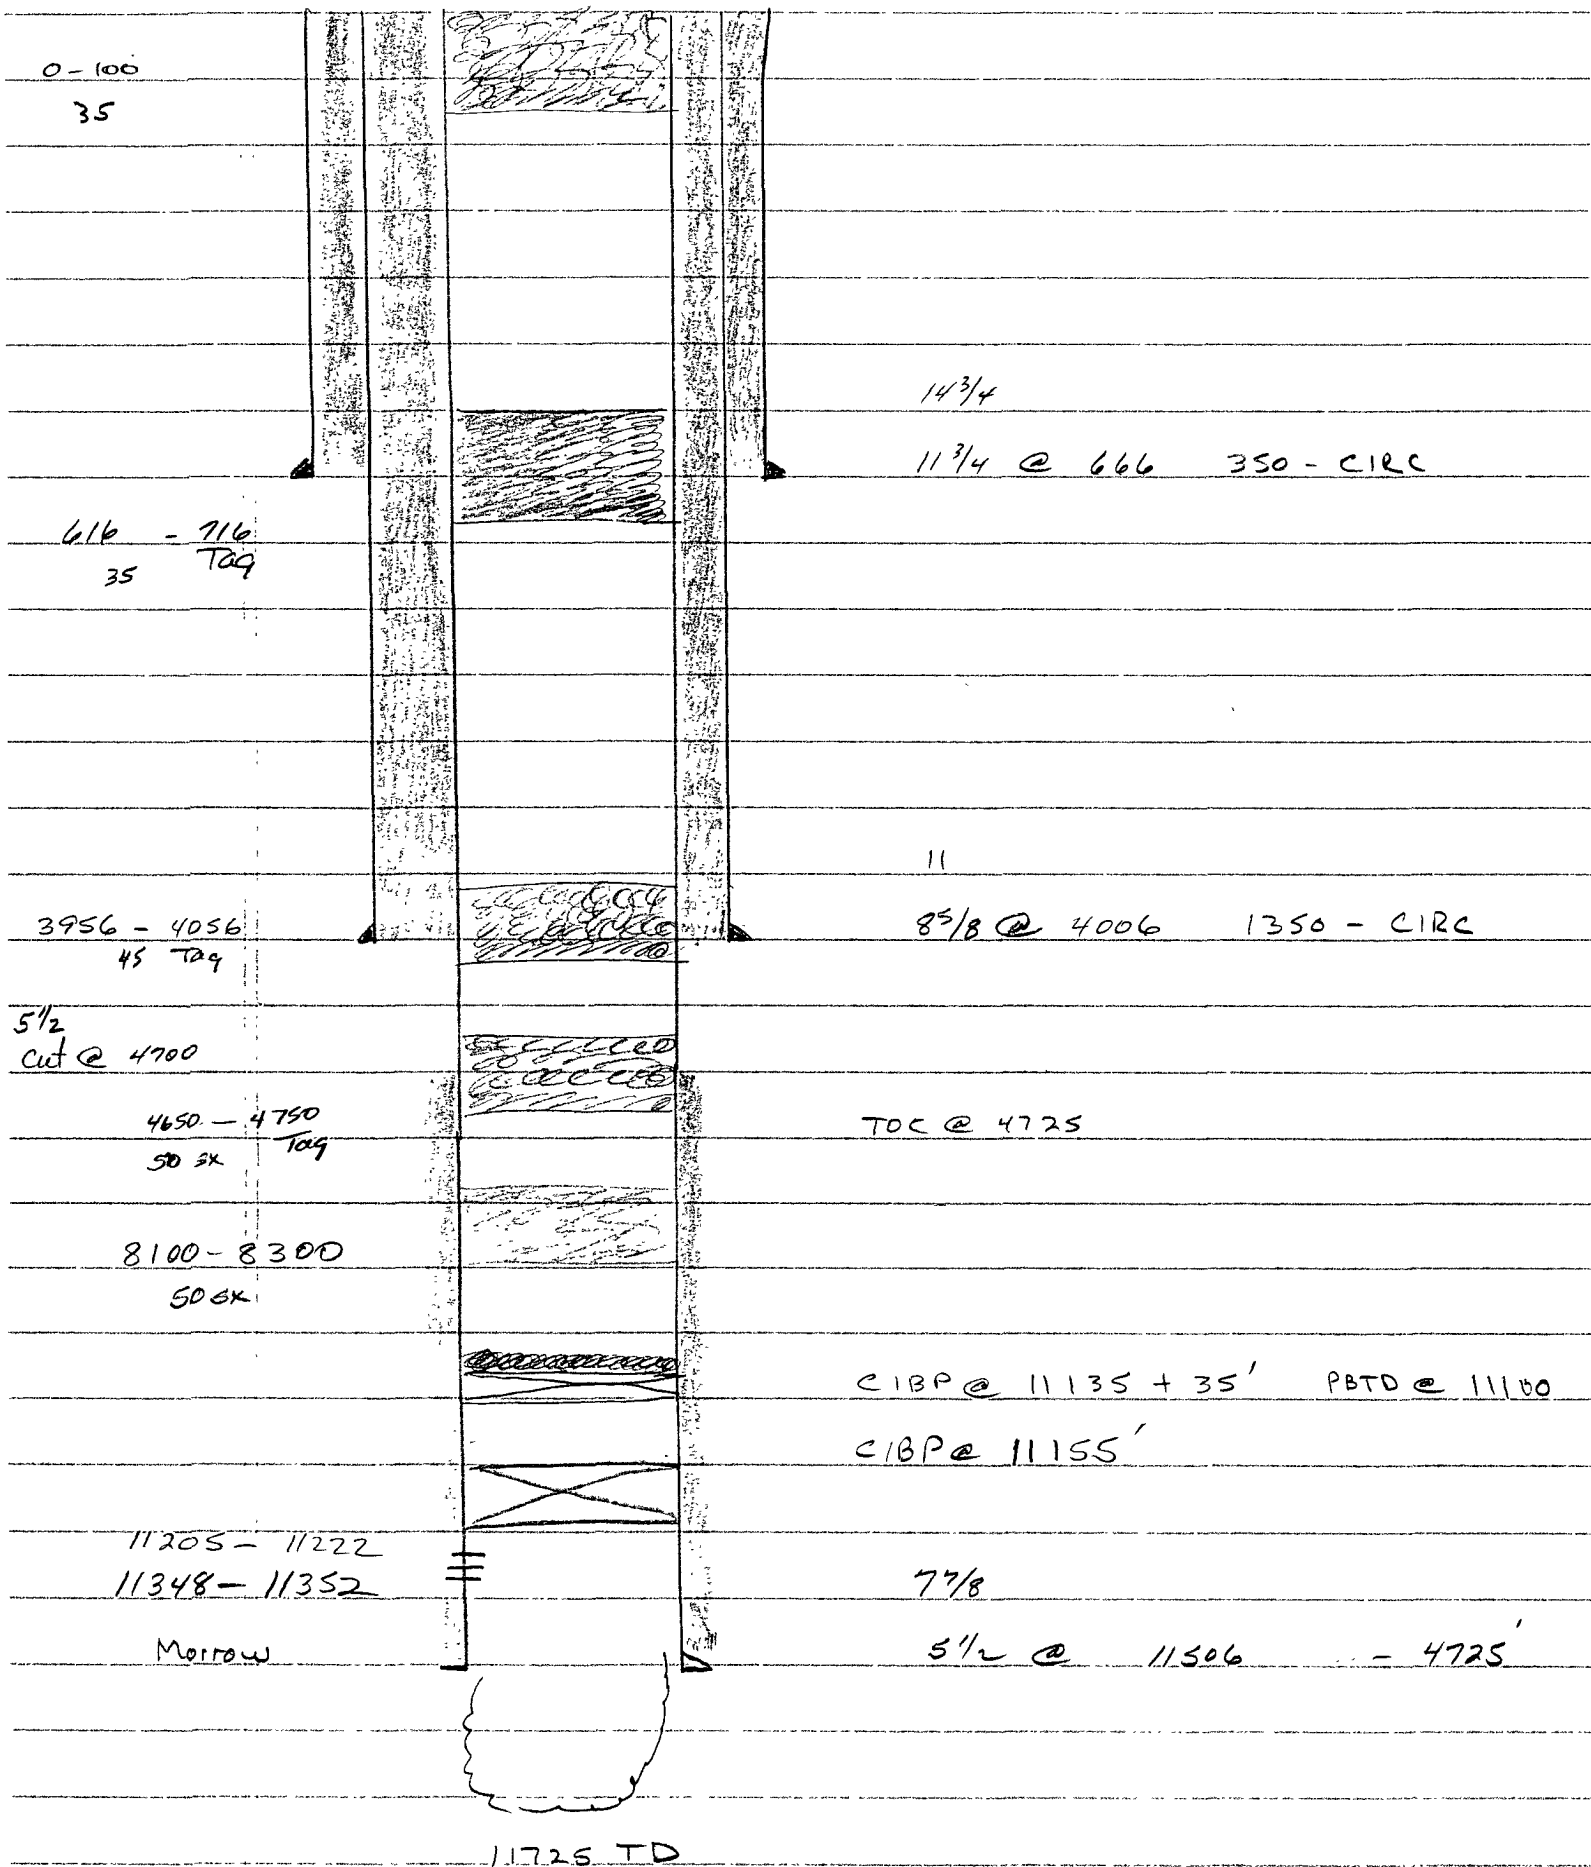 0 - 100
35
14 3/4
11 3/4 @ 666 350 - CIRC
616 - 716
35 Tag
11
3956 - 4056
45 Tag
8 5/8 @ 4006 1350 - CIRC
5 1/2
Cut @ 4700
4650 - 4750
50 sx Tag
TOC @ 4725
8100 - 8300
50 sx
CIBP @ 11135 + 35' PBTD @ 11100
CIBP @ 11155'
11205 - 11222
11348 - 11352
7 7/8
Morrow
5 1/2 @ 11506 - 4725'
11725 TD